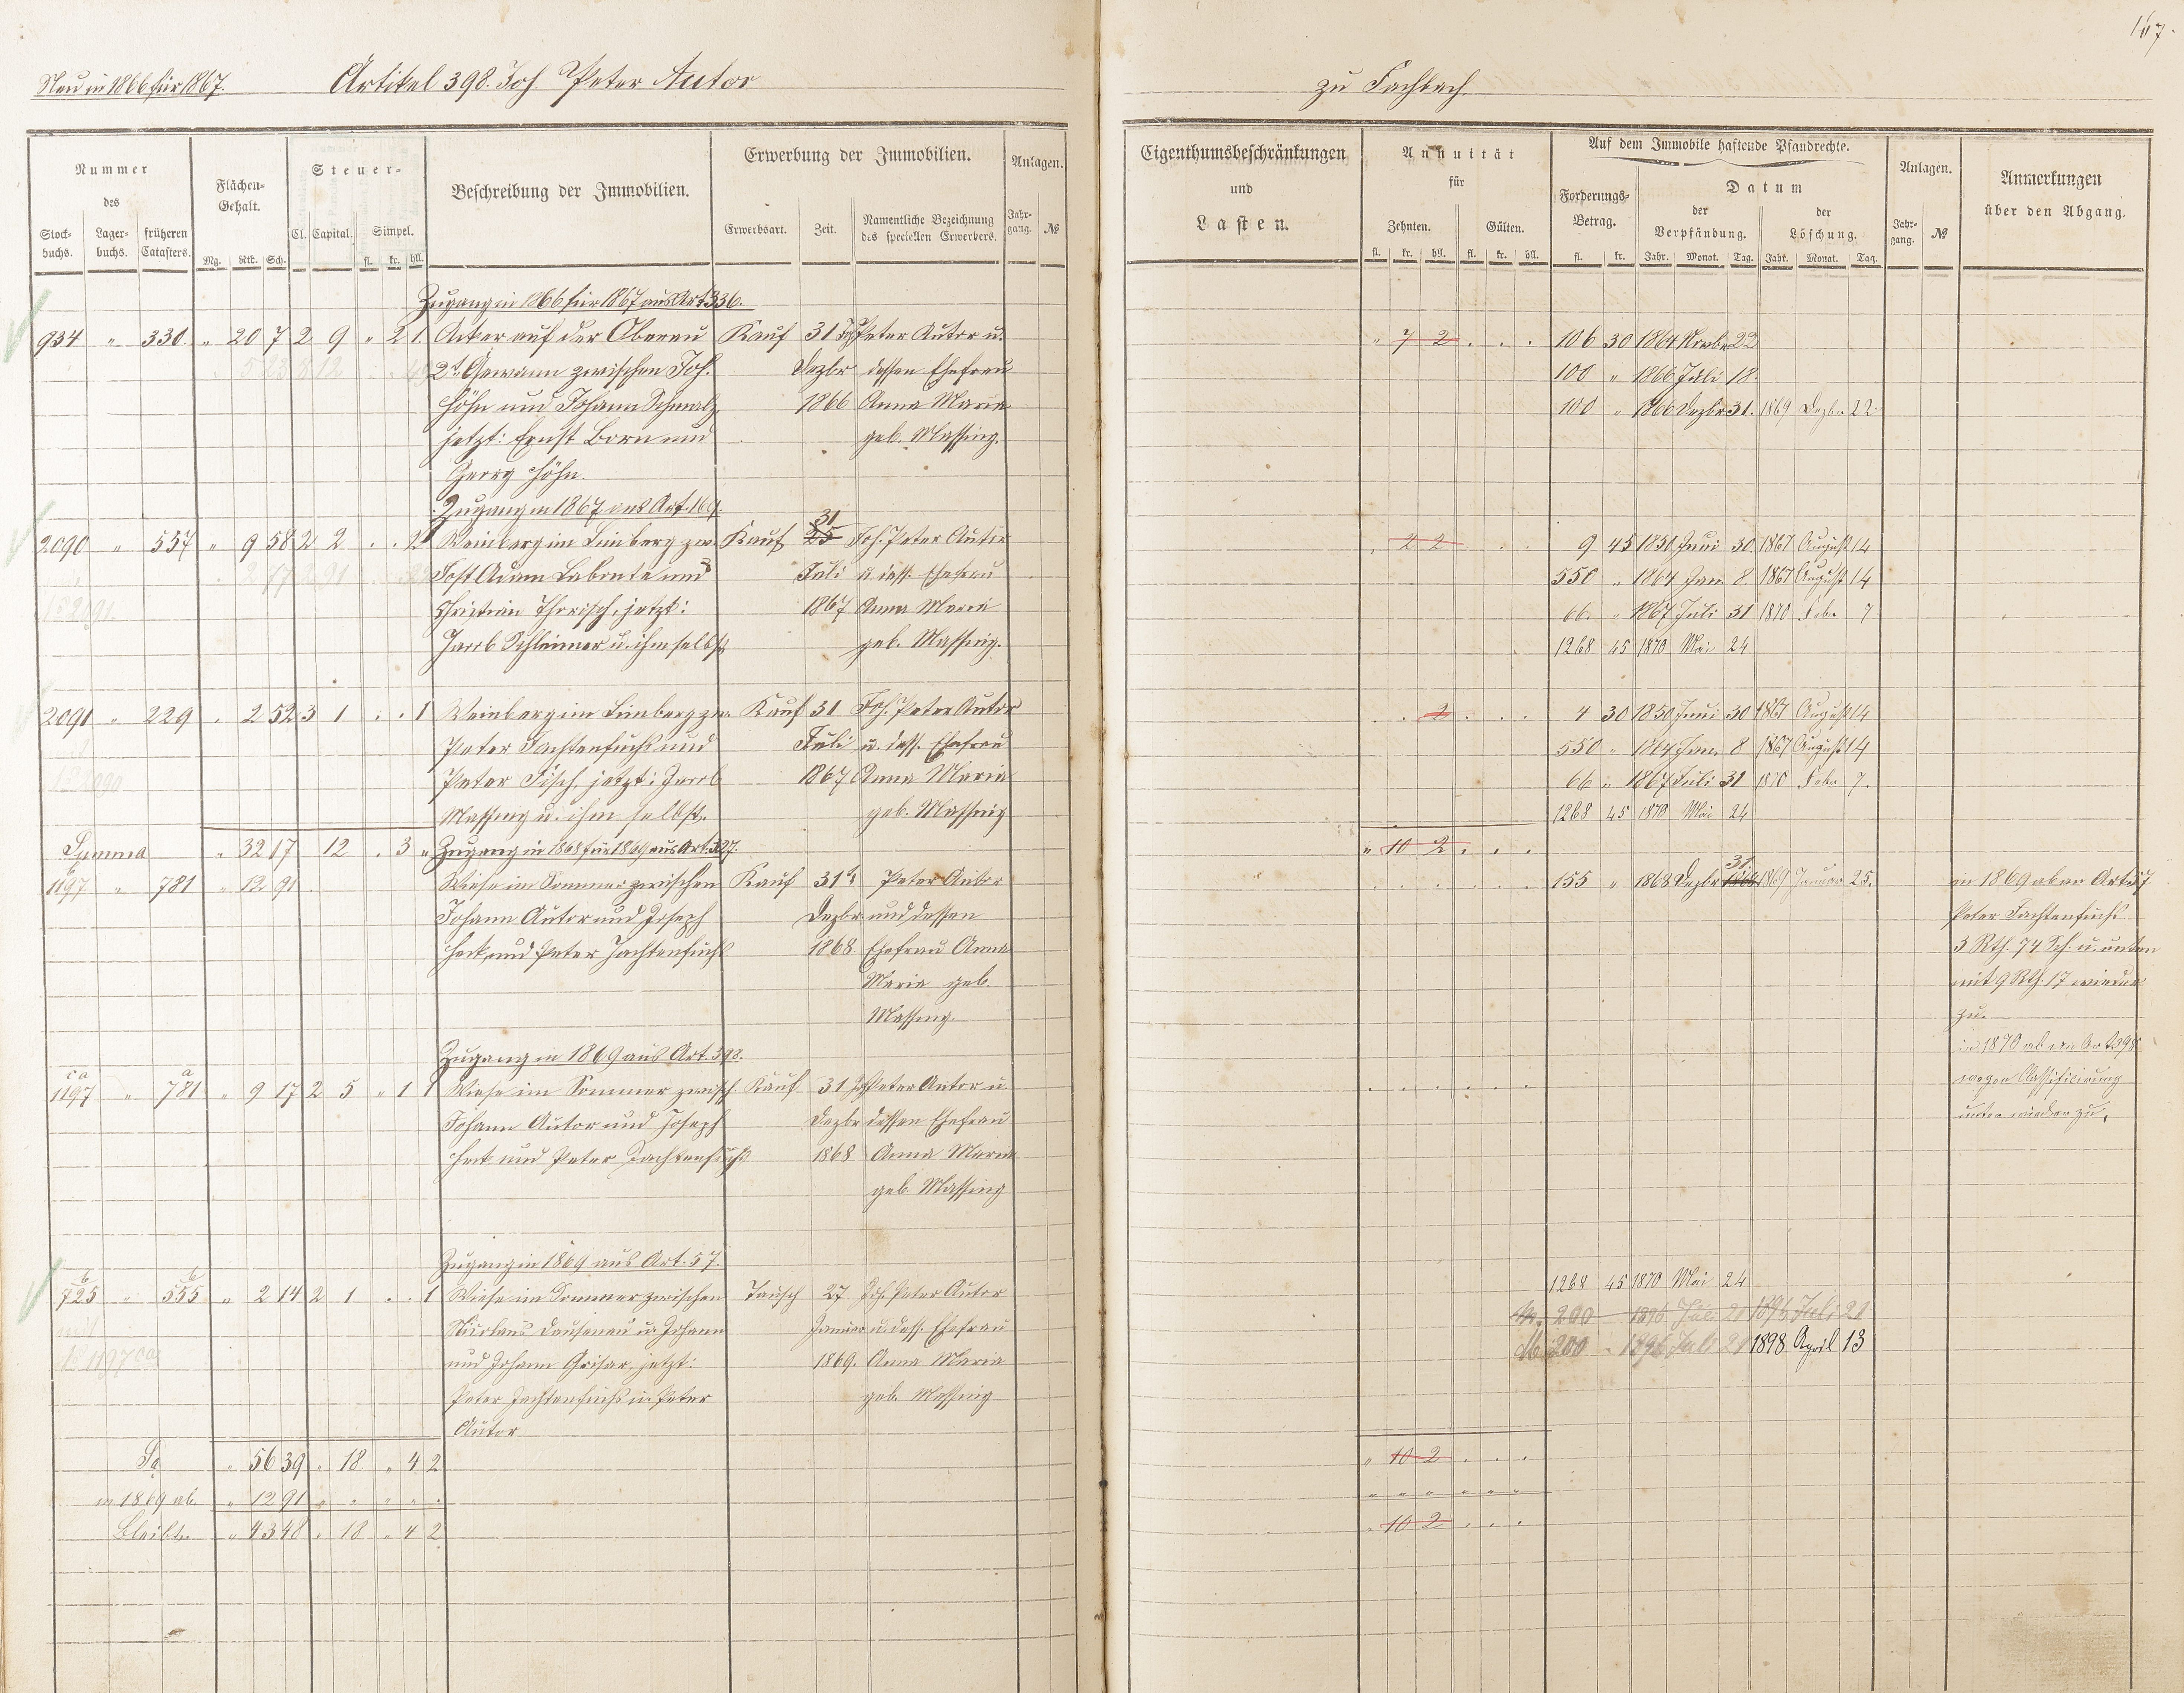 167.
Neu in 1866 für 1867. Artikel 398. Joh. Peter Autor zu Fachbach
Nummer des
Stock-buchs. Lager-buchs. früheren Catasters.
Flächen-Gehalt.
Mg. Rth. Sch.
Steuer-
Cl. Capital. Simpel.
fl. kr. hll.
Beschreibung der Immobilien.
Erwerbung der Immobilien.
Erwerbsart. Zeit. Namentliche Bezeichnung des speciellen Erwerbers.
Anlagen.
Jahr-gang. №
Eigenthumsbeschränkungen
und
Lasten.
Annuität
für
Zehnten. Gülten.
fl. kr. hll. fl. kr. hll.
Auf dem Immobile haftende Pfandrechte.
Forderungs-Betrag.
fl. kr.
Datum
der Verpfändung. der Löschung.
Jahr. Monat. Tag. Jahr. Monat. Tag.
Anlagen.
Jahr-gang. №
Anmerkungen
über den Abgang.
Zugang in 1866 für 1867 aus Art. 336.
934 " 330 " 20 7 2 9 " 2 1 Acker auf der Oberau Kauf 31 Joh. Peter Autor u. " 7 2 . . . 106 30 1864 Novbr 22
2t Gewann zwischen Joh. Dezbr dessen Ehefrau 100 " 1866 Juli 18.
Höhn und Johann Schmalz, 1866 Anna Maria 100 " 1866 Dezbr 31. 1869 Dezbr. 22.
jetzt: Ernst Born und geb. Massing.
Georg Höhn
Zugang in 1867 aus Art. 169.
31
2090 " 557 " 9 58 2 2 . . 2 Weinberg im Limberg zw. Kauf 25 Joh. Peter Autor . 2 2 9 45 1850 Juni 30. 1867 August 14
Jost Adam Labonte und Juli u. dess. Ehefrau 550 " 1864 Jan. 8 1867 August 14
Christian Thorisch, jetzt: 1867 Anna Maria 66. " 1867 Juli 31 1870 Febr 7
Jacob Schleimer u. ihm selbst geb. Massing. 1268 45 1870 Mai 24
2091 " 229 . 2 52 3 1 . . 1 Weinberg im Limberg zw. Kauf 31 Joh. Peter Autor . . 2 . . . 4 30 1850 Juni 30 1867 August 14
Peter Jachtenfuchs und Juli u. dess. Ehefrau 550 " 1864 Jan. 8 1867 August 14
Peter Fisch, jetzt: Jacob 1867 Anna Maria 66 " 1867 Juli 31 1870 Febr 7.
Massing u. ihm selbst. geb. Massing 1268 45 1870 Mai 24
Summa " 32 17 12 . 3 " Zugang in 1868 für 1869 aus Art. 327. " 10 2 . . .
31
1197 " 781 " 12 91 Wiese im Sommer zwischen Kauf 31t Peter Autor . . . . . . 155 " 1868 Dezbr 1868 1869 Januar 25. in 1869 ab an Art. 57
Johann Autor und Joseph Dezbr und dessen Peter Jachtenfuchs
Heck und Peter Jachtenfuchs 1868. Ehefrau Anna 3 Rth. 74 Sch. u. unten
Maria geb. mit 9 Rth. 17 wieder
Massing. zu.
Zugang in 1869 aus Art. 398. in 1870 ab an Art. 398
ca a
1197 " 781 " 9 17 2 5 " 1 1 Wiese im Sommer zwisch Kauf 31 Joh. Peter Autor u . . . . . . wegen Classificirung
Johann Autor und Joseph Dezbr dessen Ehefrau unten wieder zu.
Heck und Peter Jachtenfuchs 1868 Anna Maria
geb. Massing
Zugang in 1869 aus Art. 57.
b b
725 " 555 " 2 14 2 1 . . 1 Wiese im Sommer zwischen Tausch 27 Joh. Peter Autor 1268 45 1870 Mai 24
Nicolaus Dausenau u. Johann Januar u. dess. Ehefrau M. 200 1896 Juli 21 1896 Juli 21
und Johann Grisar, jetzt: 1869. Anna Maria M 200 - 1896 Juli 21 1898 April 13
Peter Jachtenfuchs u. Peter geb. Massing
Autor
Sa " 56 39 " 18 " 4 2 " 10 2 . . .
in 1869 ab. " 12 91 " " " " . " " " " " "
Bleibt. " 43 48 " 18 " 4 2 . 10 2 . . .